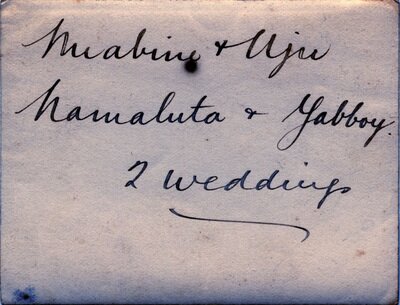 Muabine & Uju
Namaluta & Yabboy.
2 Weddings